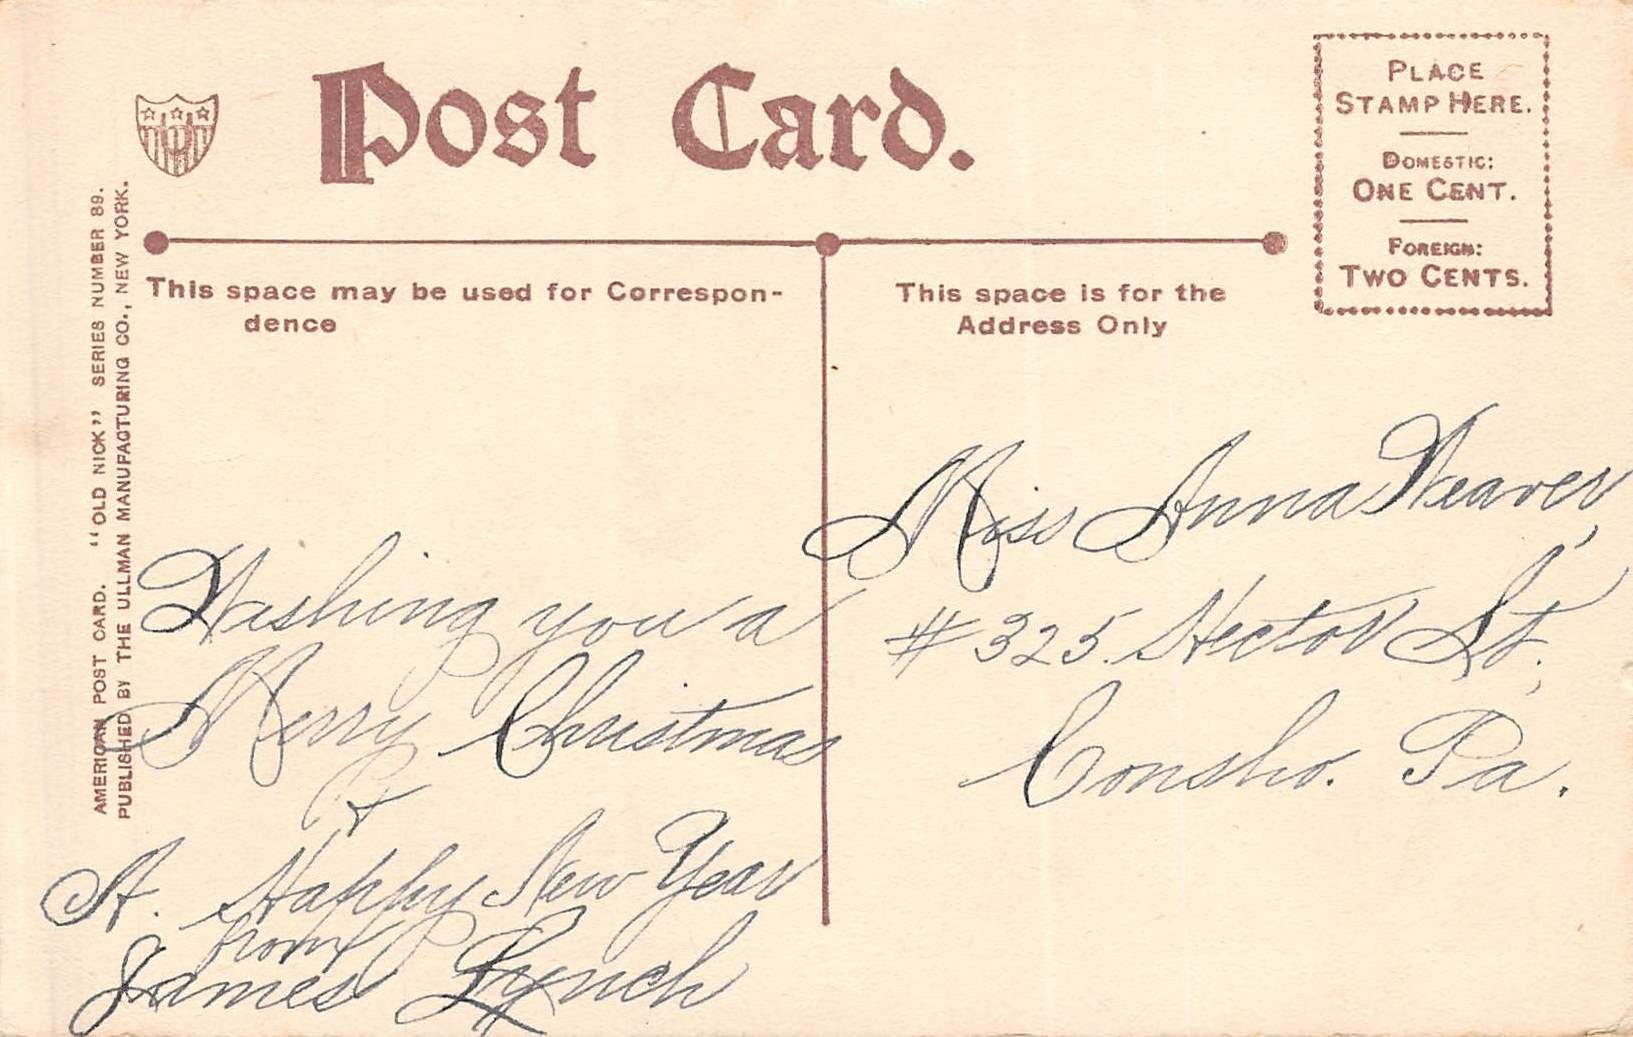 Post Card.
PLACE
STAMP HERE.
DOMESTIC:
ONE CENT.
FOREIGN:
TWO CENTS.
P
AMERICAN POST CARD. "OLD NICK" SERIES NUMBER 89.
PUBLISHED BY THE ULLMAN MANUFACTURING CO., NEW YORK.
This space may be used for Correspon-
dence
Wishing you a
Merry Christmas
&
A. Happy New Year
from
James Lynch
This space is for the
Address Only
Miss Anna Weaver,
# 325. Hector St.,
Consho. Pa.